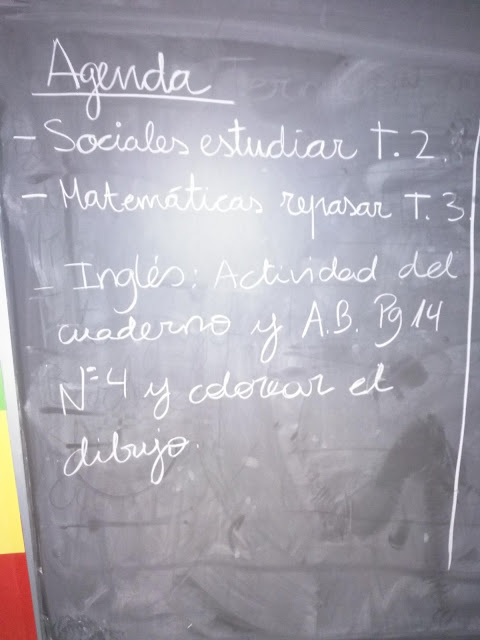 Agenda
- Sociales estudiar T. 2.
- Matemáticas repasar T. 3.
- Inglés: Actividad del
cuaderno y A.B. Pg 14
Nº 4 y colorear el
dibujo.